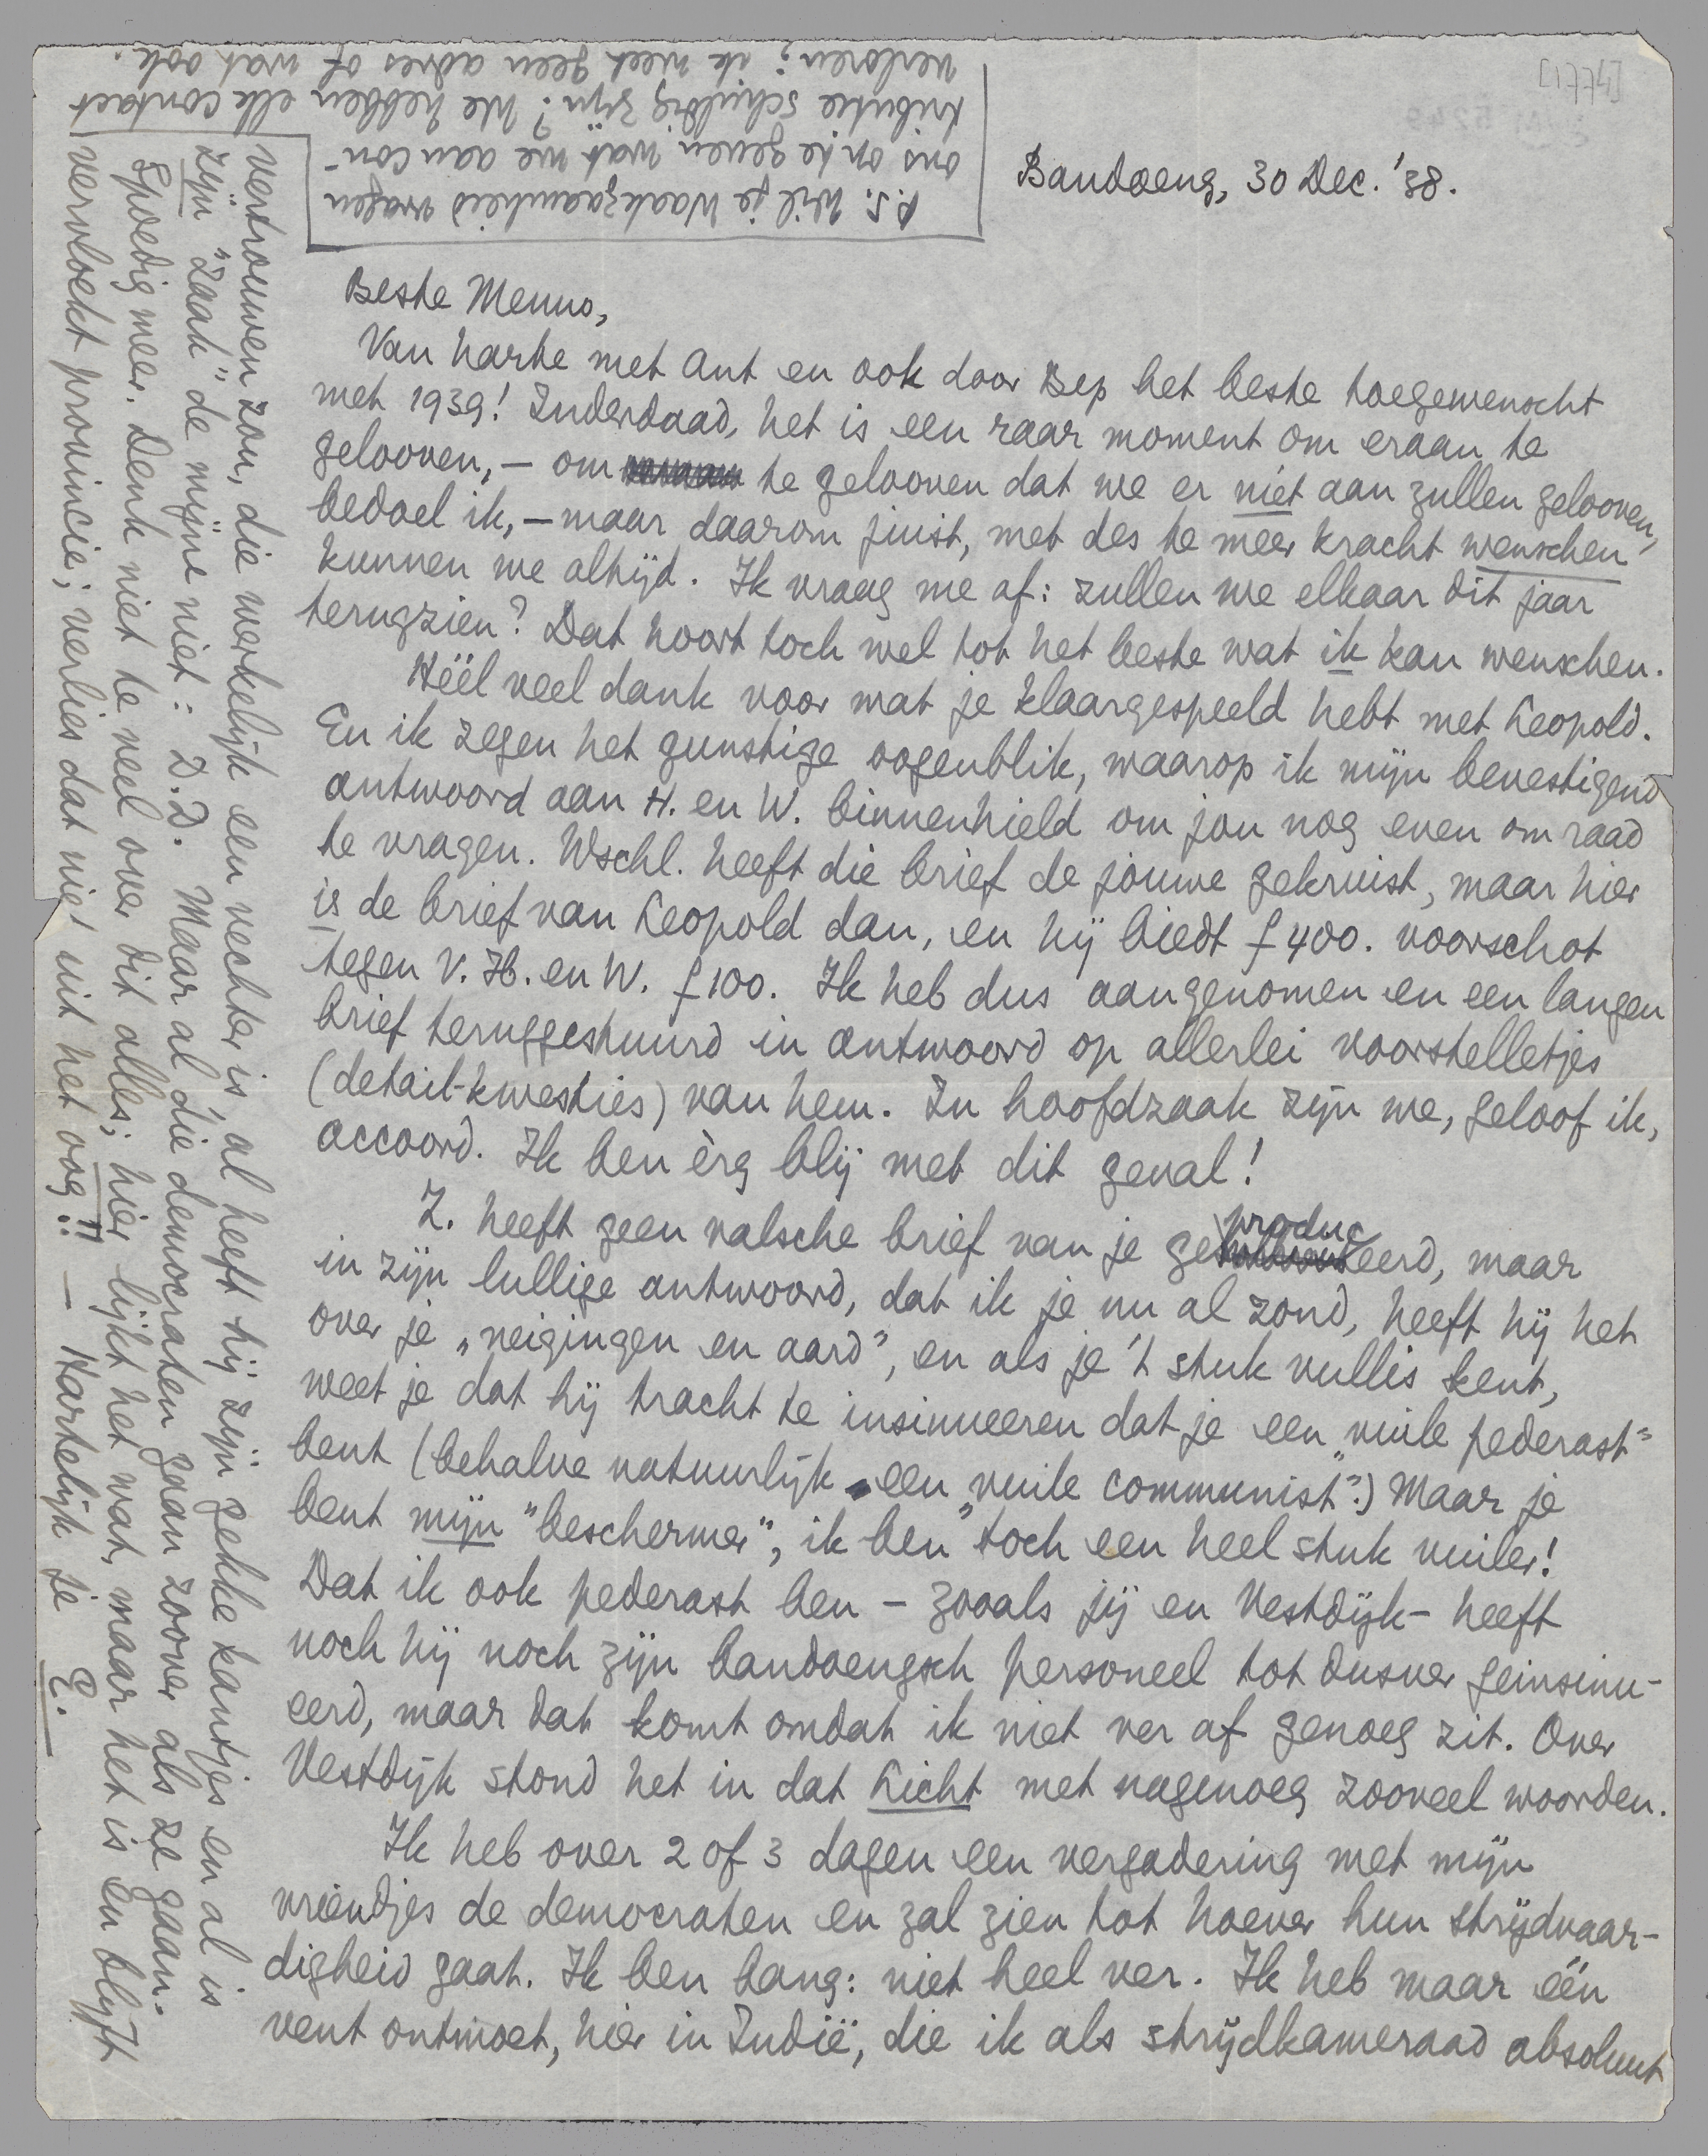 [1774]
Bandoeng, 30 Dec. '38.
Beste Menno,
Van harte met Ant en ook door Bep het beste toegewenscht
met 1939! Inderdaad, het is een raar moment om eraan te
gelooven, — om te gelooven dat we er niet aan zullen gelooven,
bedoel ik, — maar daarom juist, met des te meer kracht wenschen
kunnen we altijd. Ik vraag me af: zullen we elkaar dit jaar
terugzien? Dat hoort toch wel tot het beste wat ik kan wenschen.
Héél veel dank voor wat je klaargespeeld hebt met Leopold.
En ik zegen het gunstige oogenblik, waarop ik mijn bevestigend
antwoord aan H. en W. binnenhield om jou nog even om raad
te vragen. Wschl. heeft die brief de jouwe gekruist, maar hier
is de brief van Leopold dan, en hij biedt f 400. voorschot
tegen V. H. en W. f 100. Ik heb dus aangenomen en een langen
brief teruggestuurd in antwoord op allerlei voorstelletjes
(detail-kwesties) van hem. In hoofdzaak zijn we, geloof ik,
accoord. Ik ben èrg blij met dit geval!
Z. heeft geen valsche brief van je geproduceerd, maar
in zijn lullige antwoord, dat ik je nu al zond, heeft hij het
over je „neigingen en aard", en als je 't stuk vullis kent,
weet je dat hij tracht te insinueeren dat je een „vuile pederast"
bent (behalve natuurlijk een „vuile communist".) Maar je
bent mijn "beschermer", ik ben toch een heel stuk vuiler!
Dat ik ook pederast ben — zooals jij en Vestdijk — heeft
noch hij noch zijn bandoengsch personeel tot dusver geinsinu-
eerd, maar dat komt omdat ik niet ver af genoeg zit. Over
Vestdijk stond het in dat Licht met nagenoeg zooveel woorden.
Ik heb over 2 of 3 dagen een vergadering met mijn
vriendjes de democraten en zal zien tot hoever hun strijdvaar-
digheid gaat. Ik ben bang: niet heel ver. Ik heb maar één
vent ontmoet, hier in Indië, die ik als strijdkameraad absoluut
vertrouwen zou, die werkelijk een vechter is, al heeft hij zijn gekke kantjes en al is
zijn „zaak" de mijne niet: D.D. Maar al die democraten gaan zoover als ze gaan.
Spoedig meer. Denk niet te veel over dit alles; hier lijkt het wat, maar het is en blijft
vervloekt provincie; verlies dat niet uit het oog!! — Hartelijk je E.
P.S. Wil je Waakzaamheid vragen
ons op te geven wat we aan con-
tributie schuldig zijn? We hebben elk contact
verloren; ik weet geen adres of wat ook.